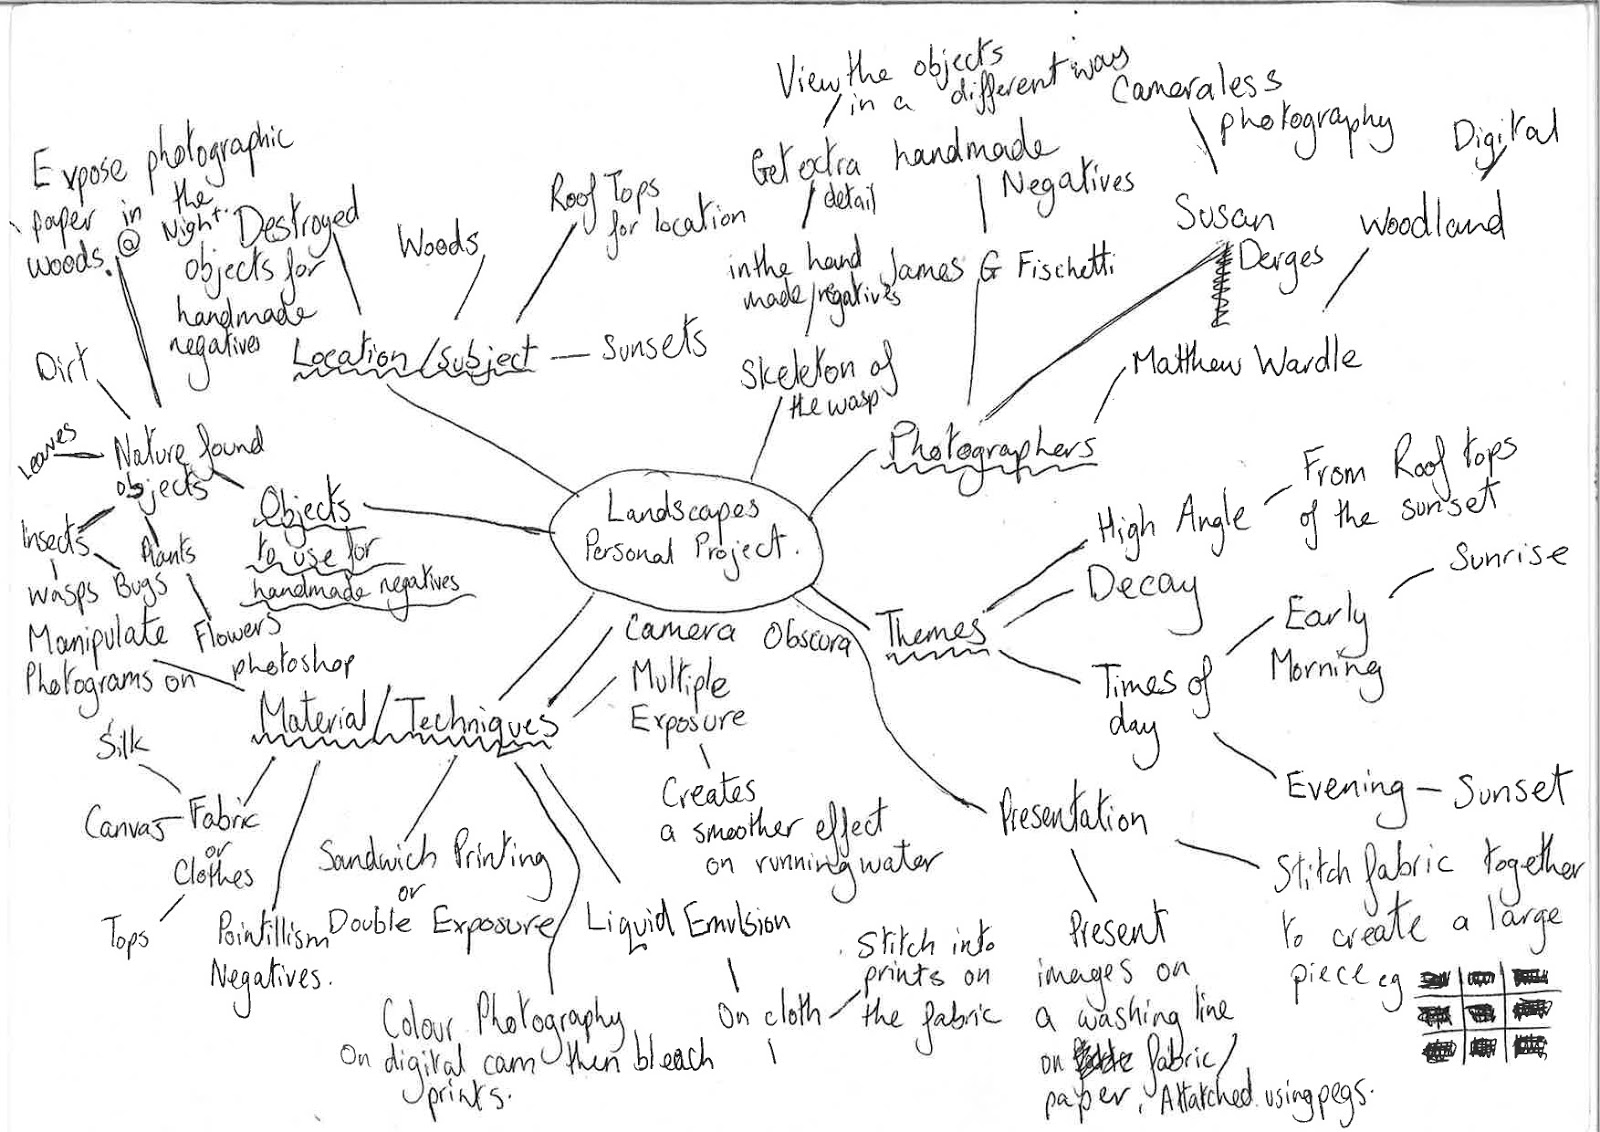 View the objects
in a different way
Cameraless
photography
Digital
Expose photographic
paper in the
woods @ Night.
Destroyed
objects for
handmade
negatives
Woods
Roof Tops
for location
Get extra
detail
in the hand
made negatives
Skeleton of
the wasp
handmade
Negatives
James G Fischetti
Susan
Derges
Woodland
Matthew Wardle
Location/Subject
Sunsets
Photographers
Dirt
Leaves
Nature found
objects
Insects
Wasps
Bugs
Plants
Flowers
Objects
to use for
handmade negatives
Landscapes
Personal Project.
High Angle
From Roof tops
of the sunset
Decay
Themes
Times of
day
Early
Morning
Sunrise
Evening – Sunset
Manipulate
Photograms on
photoshop
Camera Obscura
Multiple
Exposure
Creates
a smoother effect
on running water
Material/Techniques
Silk
Canvas
Fabric
or
Clothes
Tops
Pointillism
Negatives.
Sandwich Printing
or
Double Exposure
Liquid Emulsion
On cloth
Stitch into
prints on
the fabric
Colour Photography
On digital cam then bleach
prints.
Presentation
Present
images on
a washing line
on fabric/
paper, Attatched using pegs.
Stitch fabric together
to create a large
piece eg